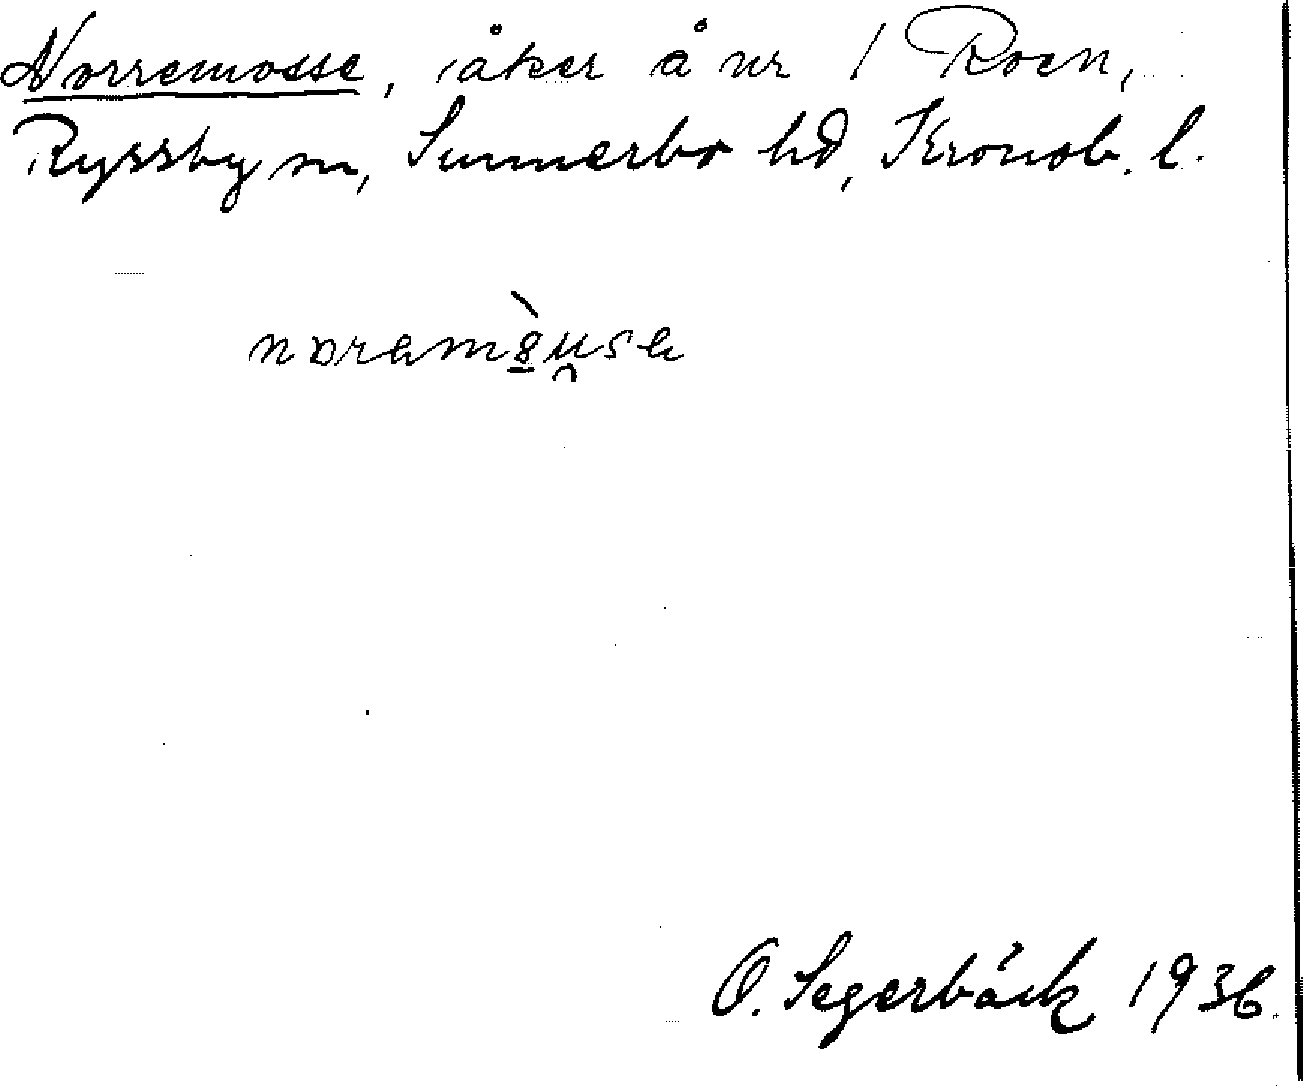 Norremosse, åker å nr 1 Roen,
Ryssby sn, Sunnerbo hd, Kronob. l.
O. Segerbäck 1936.